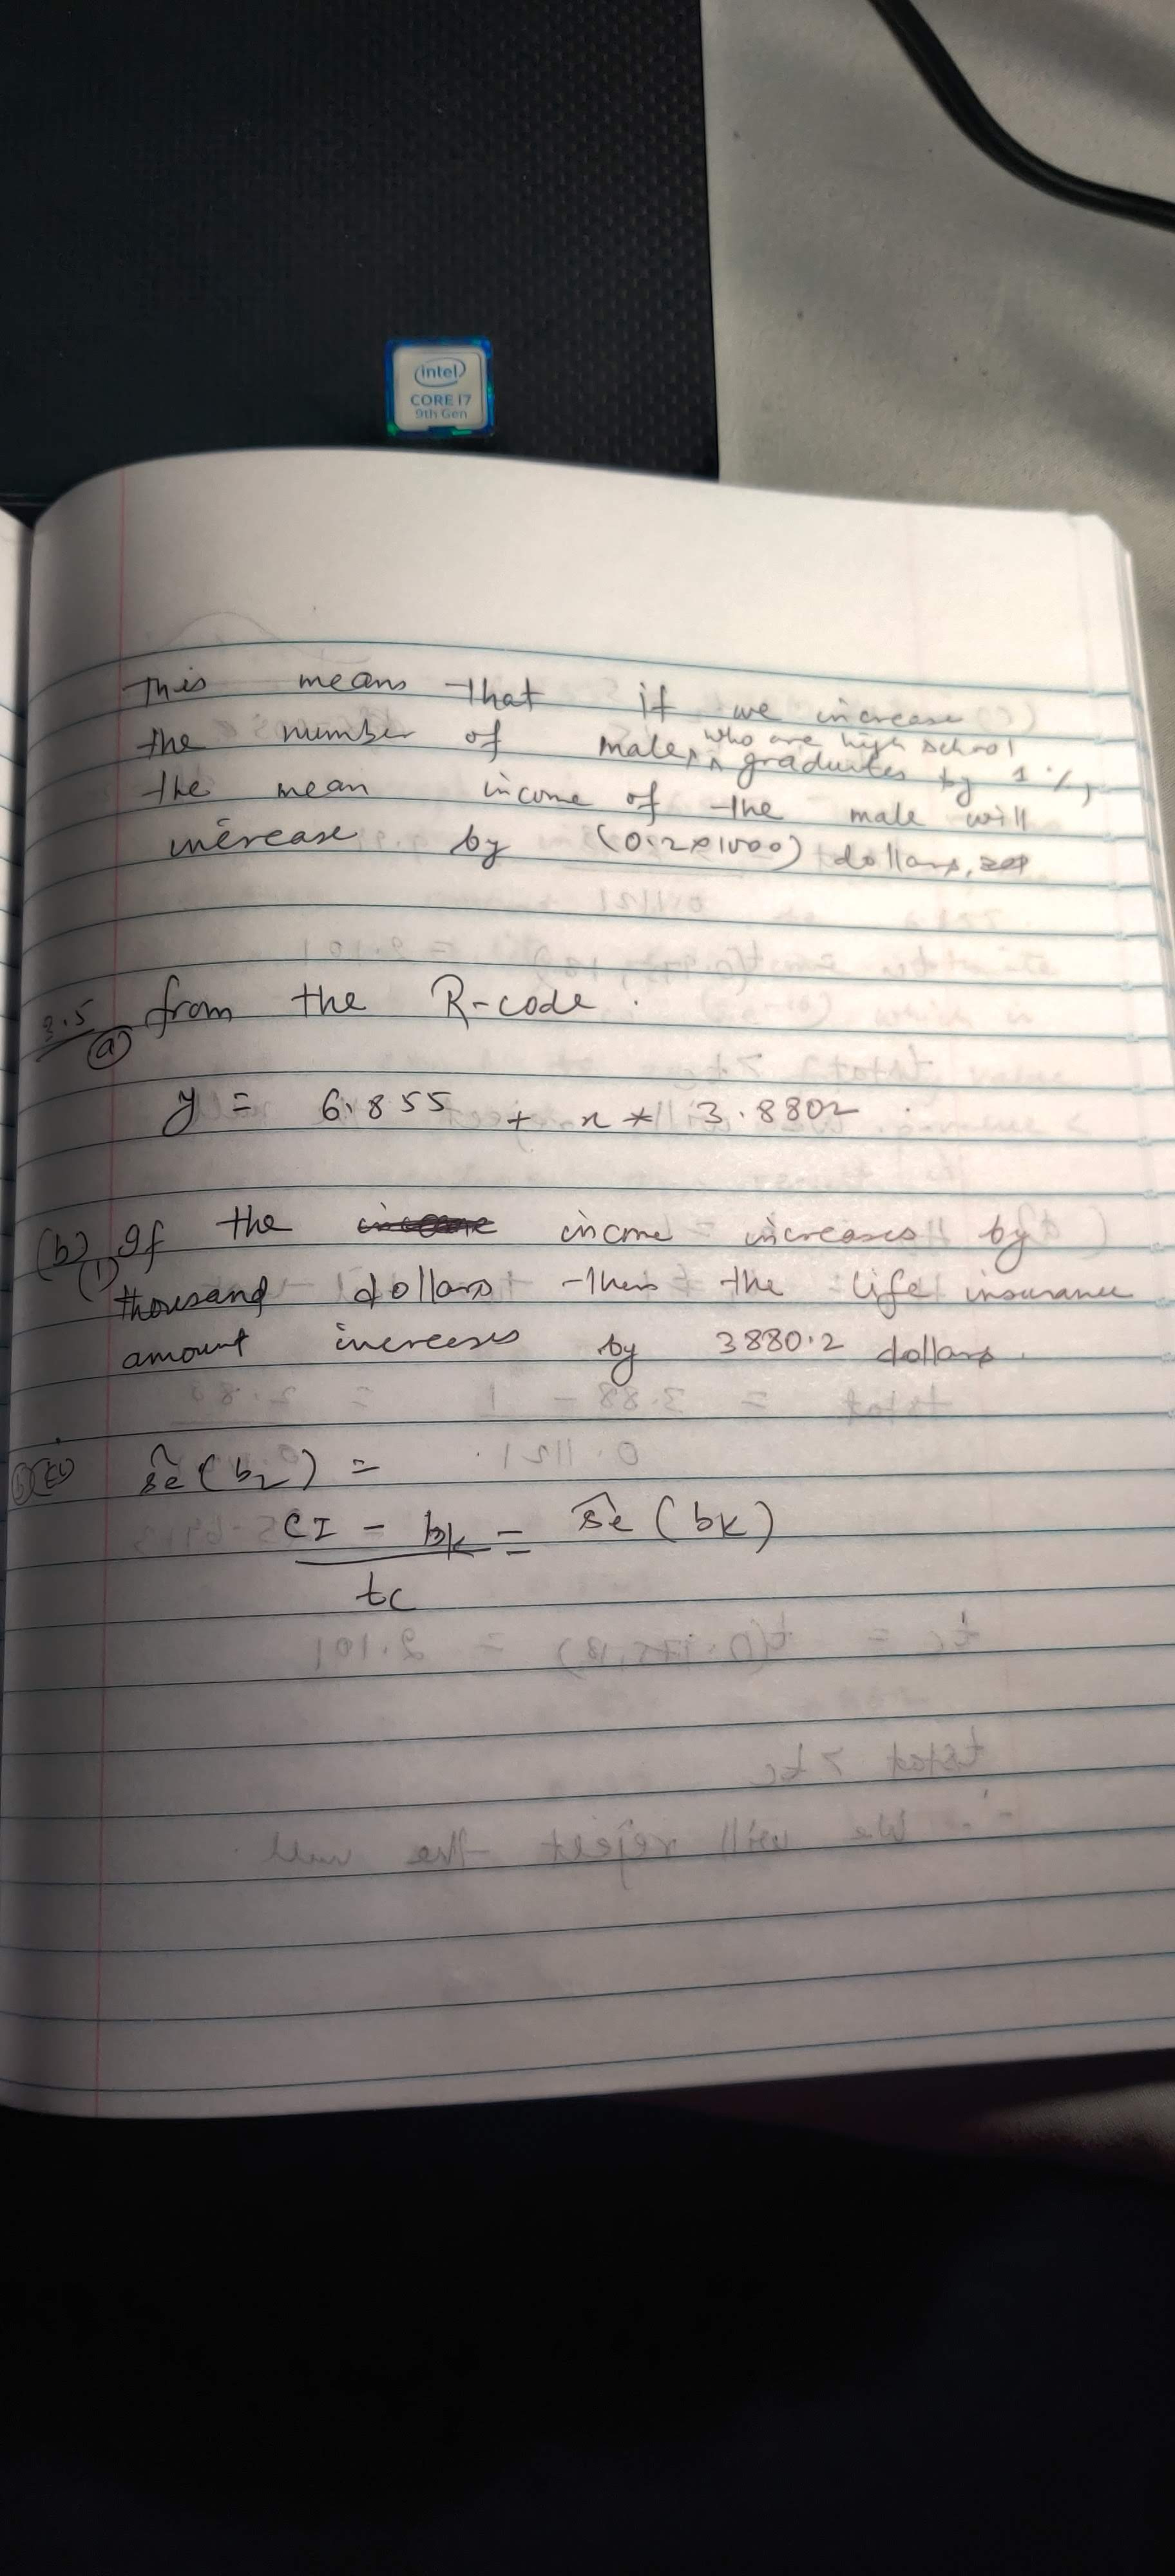 intel
CORE i7
9th Gen
This means that if we increase
the number of male, who are high school graduates by 1%,
the mean income of the male will
increase by (0.2*1000) dollars.
3.5
(a) from the R-code.
y = 6.855 + x * 3.8802
(b) If the income increases by
(1) thousand dollars then the life insurance
amount increases by 3880.2 dollars.
se(b2) =
CI - bk = se(bk)
tc